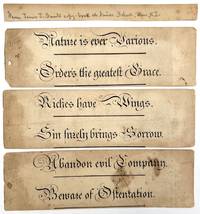 Nature is ever Various.
Order's the greatest Grace.
Riches have Wings.
Sin surely brings Sorrow.
Abandon evil Company.
Beware of Ostentation.